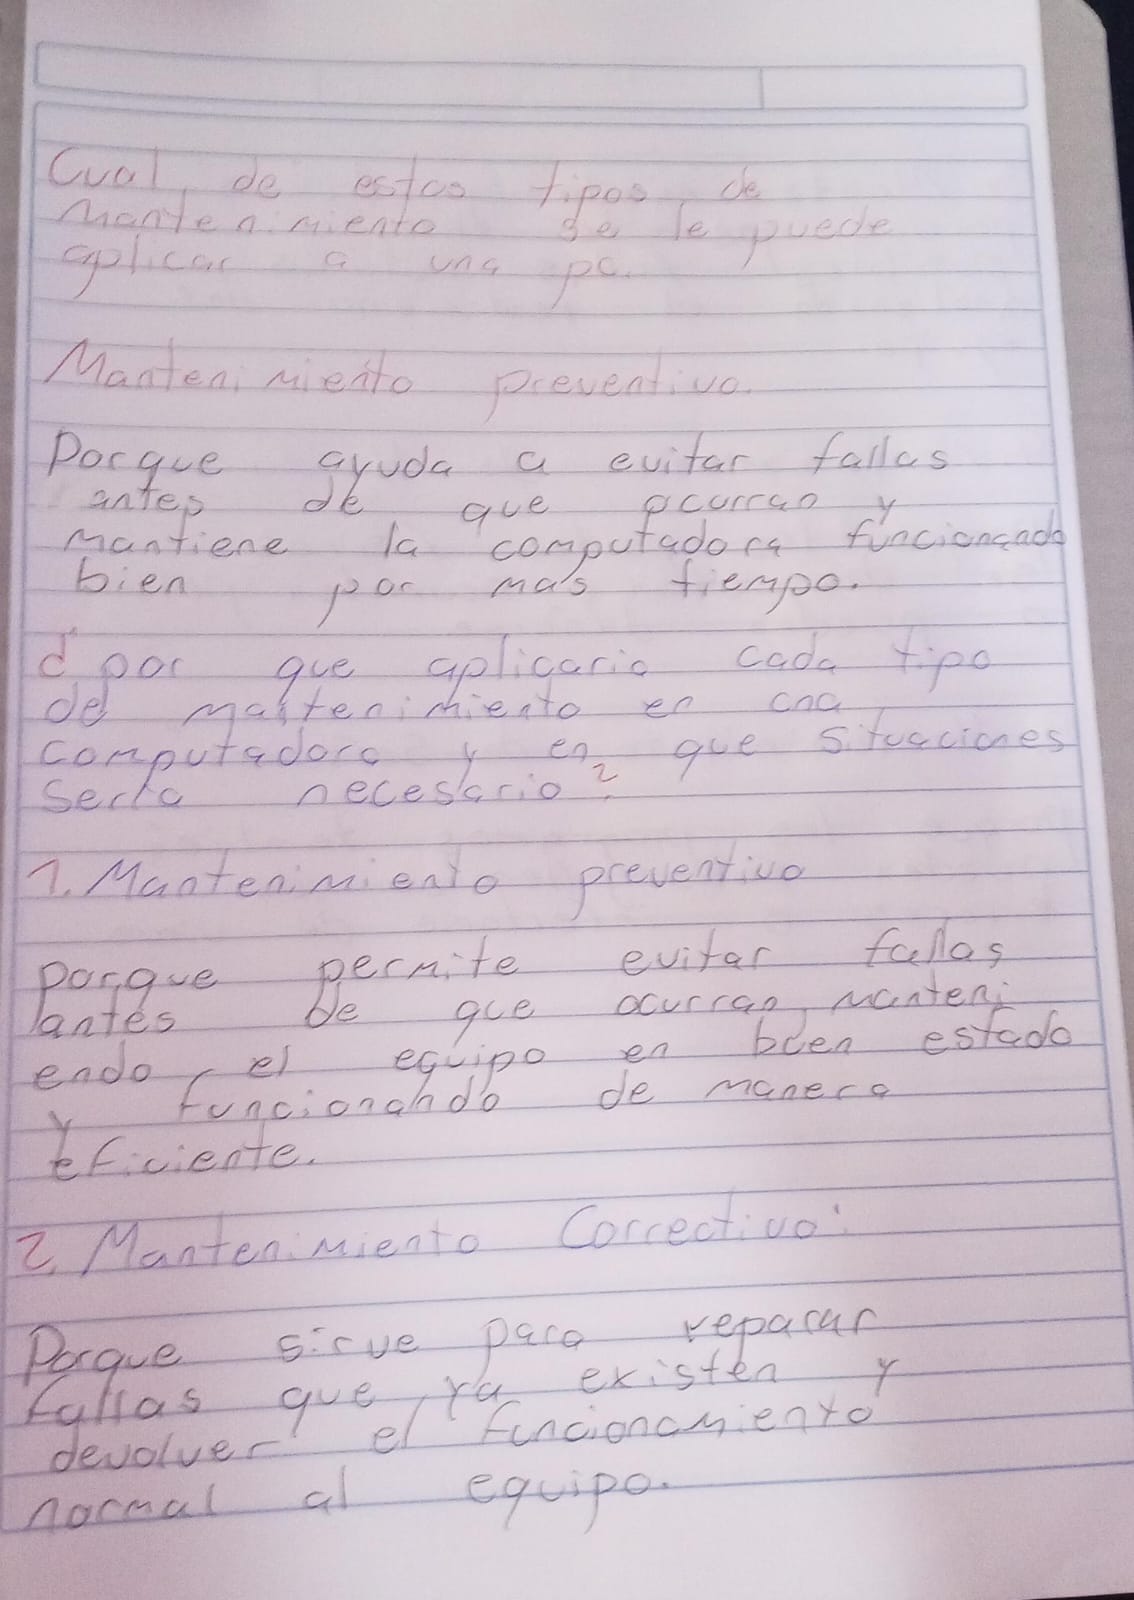 Cual de estos tipos de
mantenimiento se le puede
aplicar a una pc.
Mantenimiento preventivo.
Porque ayuda a evitar fallas
antes de que ocurran y
mantiene la computadora funcionando
bien por más tiempo.
¿por que aplicaria cada tipo
de mantenimiento en una
computadora y en que situaciones
seria necesario?
1. Mantenimiento preventivo
porque permite evitar fallas
antes de que ocurran, manteni
endo el equipo en buen estado
y funcionando de manera
eficiente.
2. Mantenimiento Correctivo:
Porque sirve para reparar
fallas que ya existen y
devolver el funcionamiento
normal al equipo.